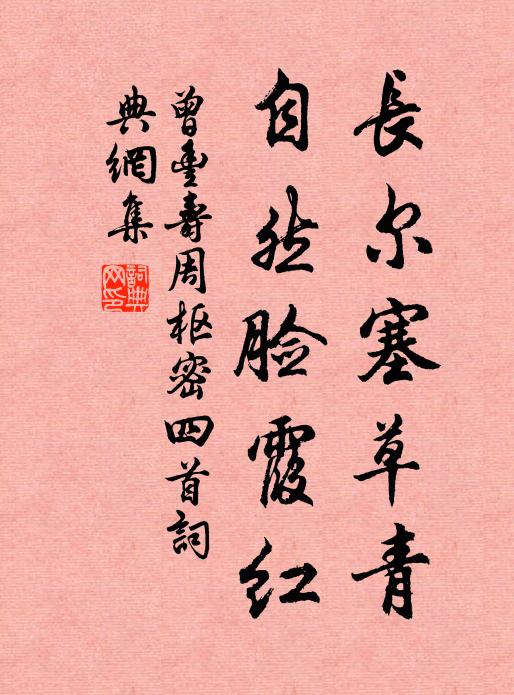 長尔塞草青
自然脸霞红
曾豊壽周枢密四首詞
典網集
詞典
网印